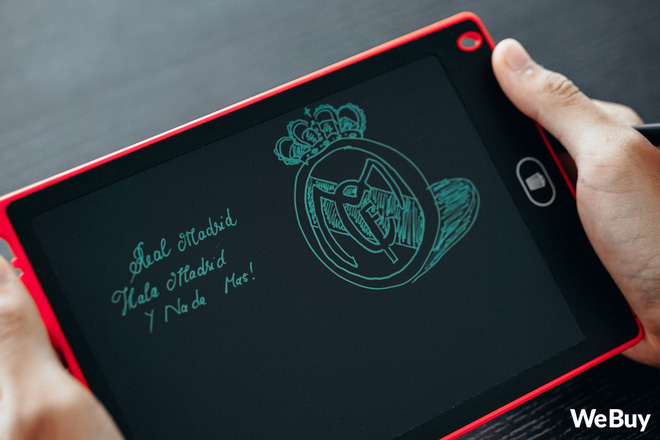 Real Madrid
Hala Madrid
Y Nada Mas!
WeBuy